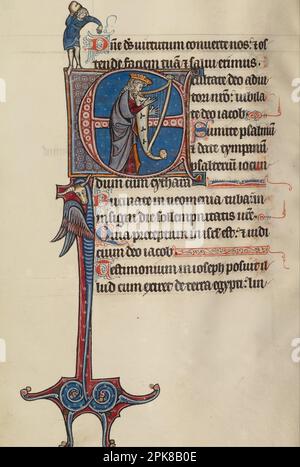 Dn̄e ds uirtutum conuerte nos: ⁊ os
tende faciem tuā ⁊ salui erimus
Exultate deo adiu
tori nr̄o: iubila
te deo iacob
Sumite psalmū
⁊ date tympanū
psalterium iocun
dum cum cythara
Buccinate in neomenia tuba: in
insigni die sollempnitatis
Quia preceptum in isrl̄ est: ⁊ iudi
cium deo iacob
Testimonium in ioseph posuit il
lud cum exiret de terra egypti: lin
2PK8B0E